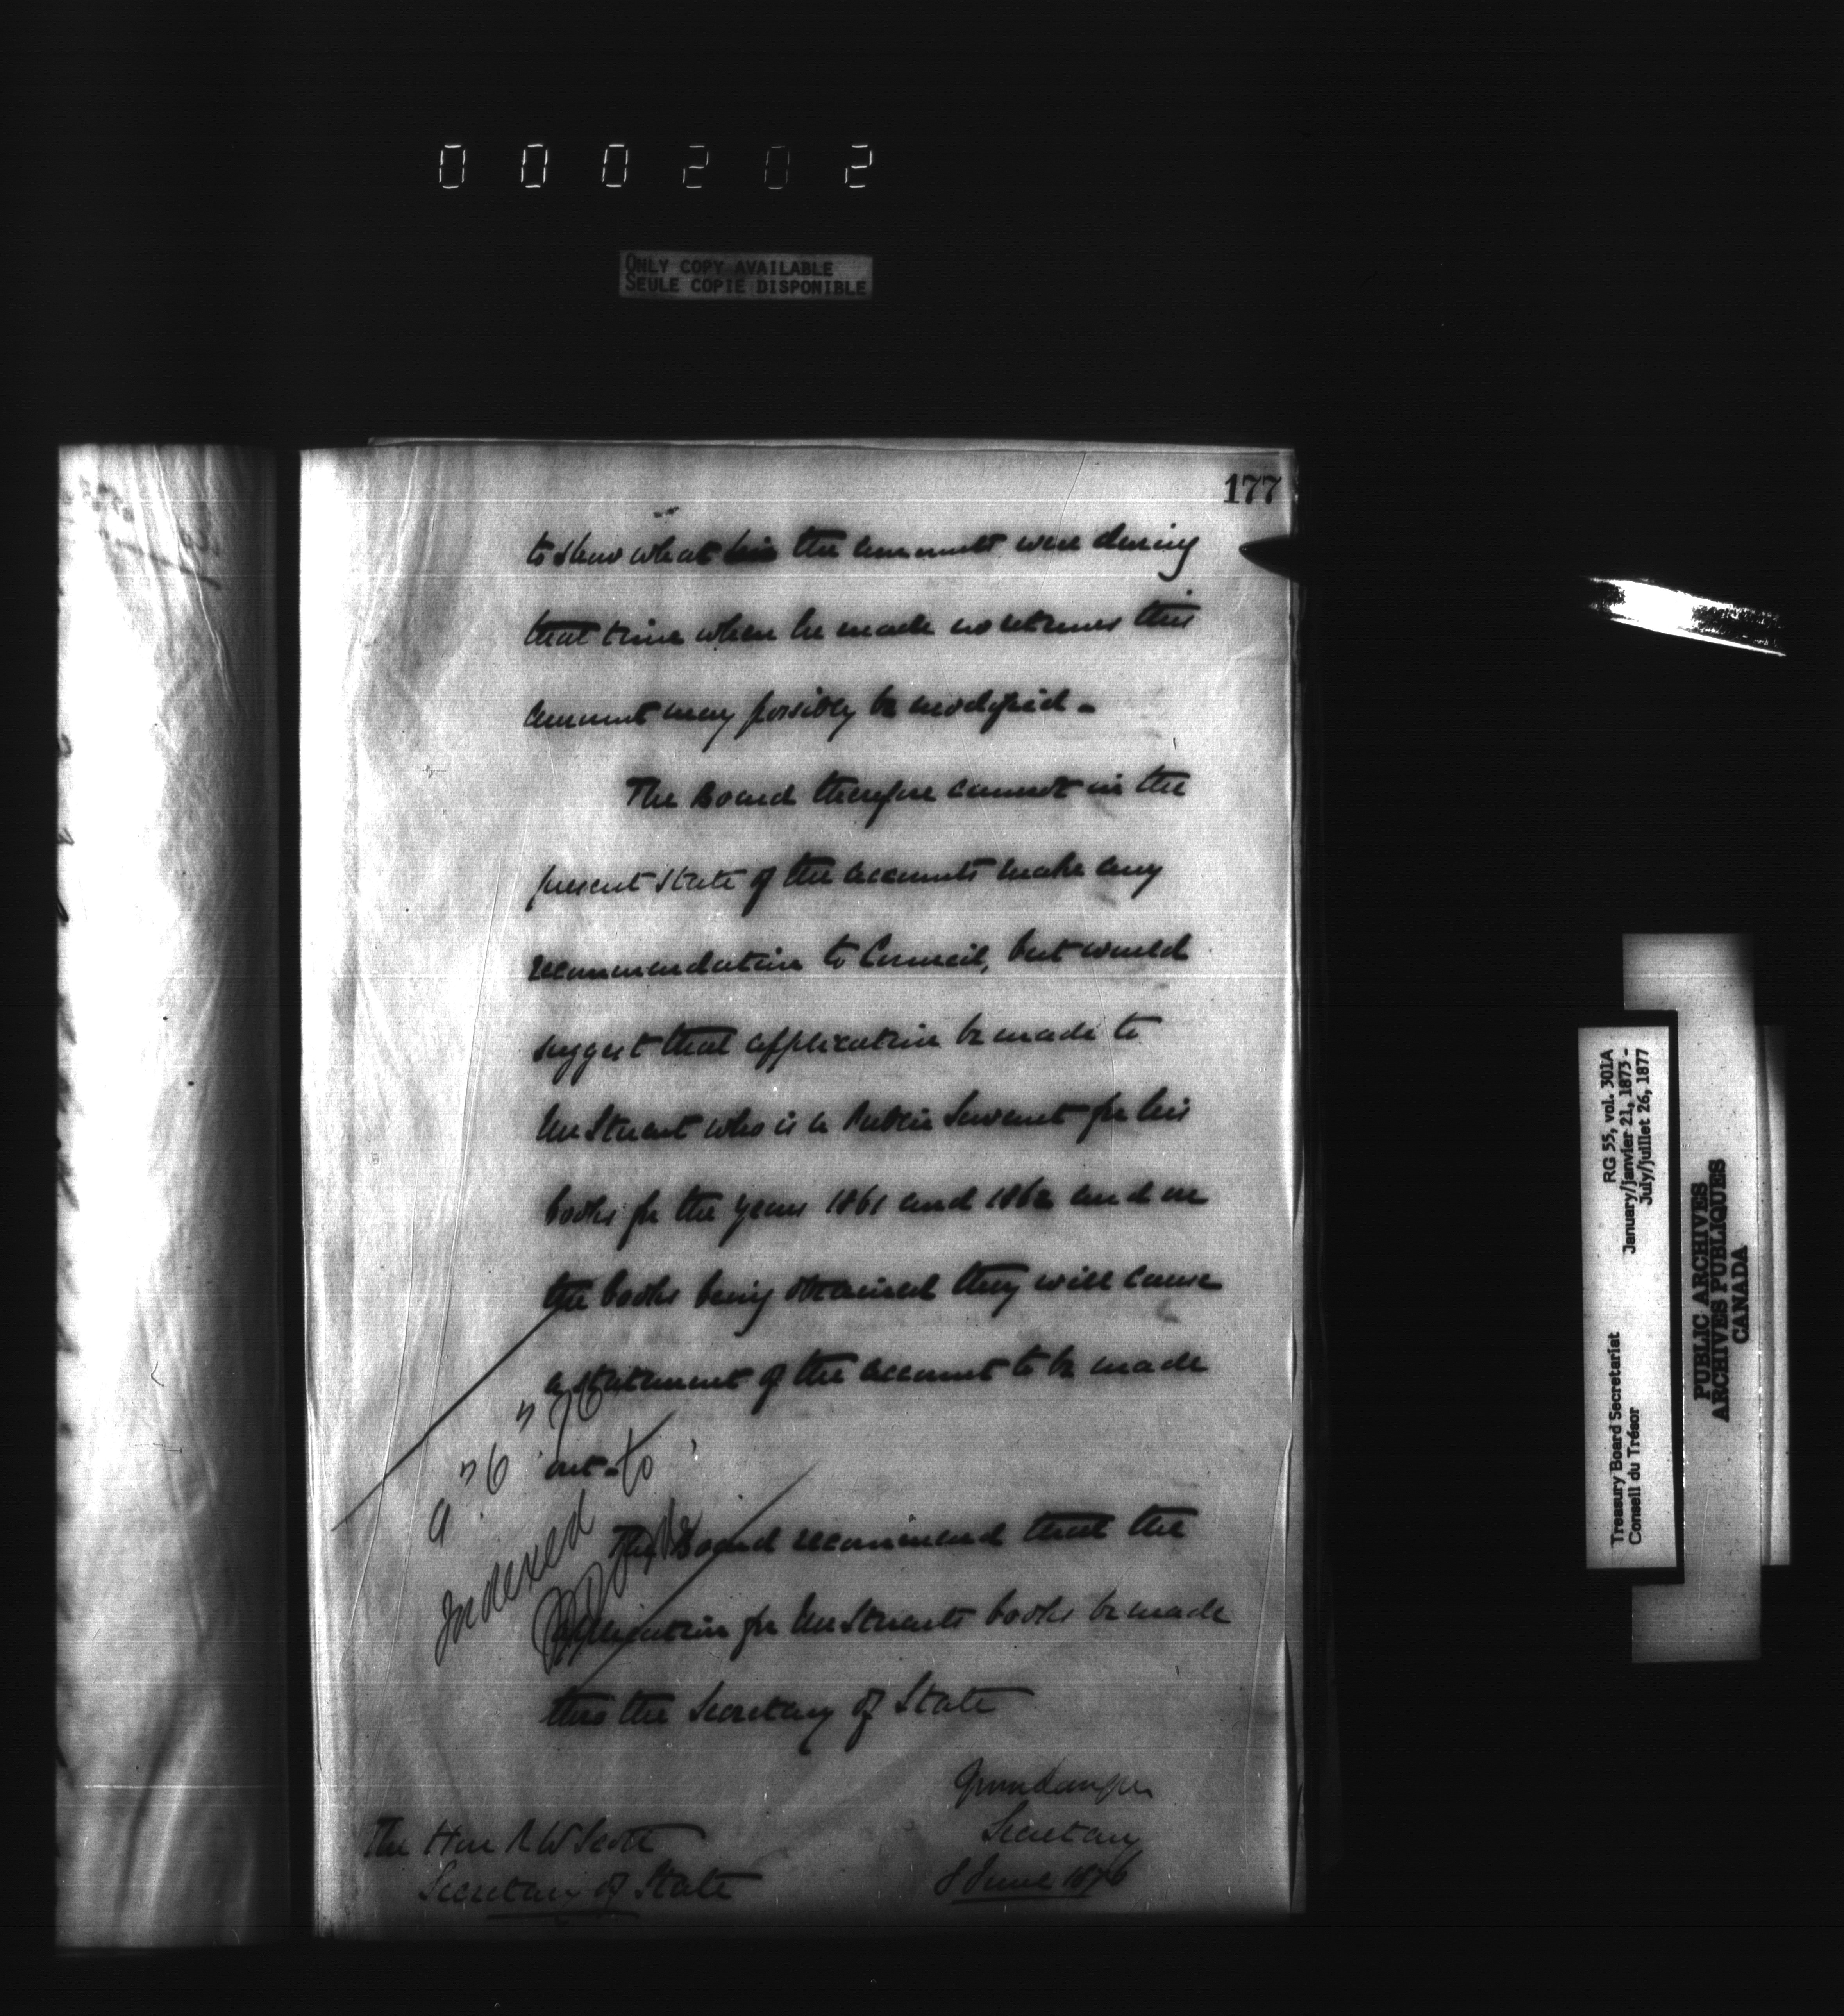 000202
ONLY COPY AVAILABLE
SEULE COPIE DISPONIBLE
177
to show what the amounts were during
that time when he made no returns this
amount may possibly be modified -
The Board therefore cannot in the
present state of the accounts make any
recommendation to Council, but would
suggest that application be made to
Mr Stuart who is a Public Servant for his
books for the years 1861 and 1862 and on
the books being obtained they will cause
a statement of the account to be made
out -
9 " 6 " 76
Indexed to
The Board recommend that the
application for Mr Stuarts books be made
thro the Secretary of State
Secretary
8 June 1876
The Hon R W Scott
Secretary of State
RG 55, vol. 301A
January/janvier 21, 1873 -
July/juillet 26, 1877
Treasury Board Secretariat
Conseil du Trésor
PUBLIC ARCHIVES
ARCHIVES PUBLIQUES
CANADA